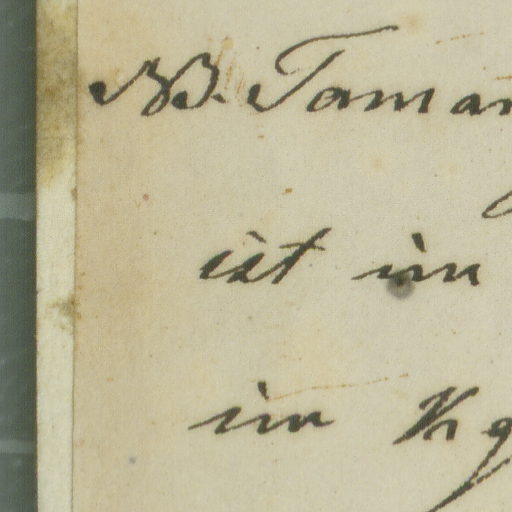 NB. Taman
ist im
im Kg